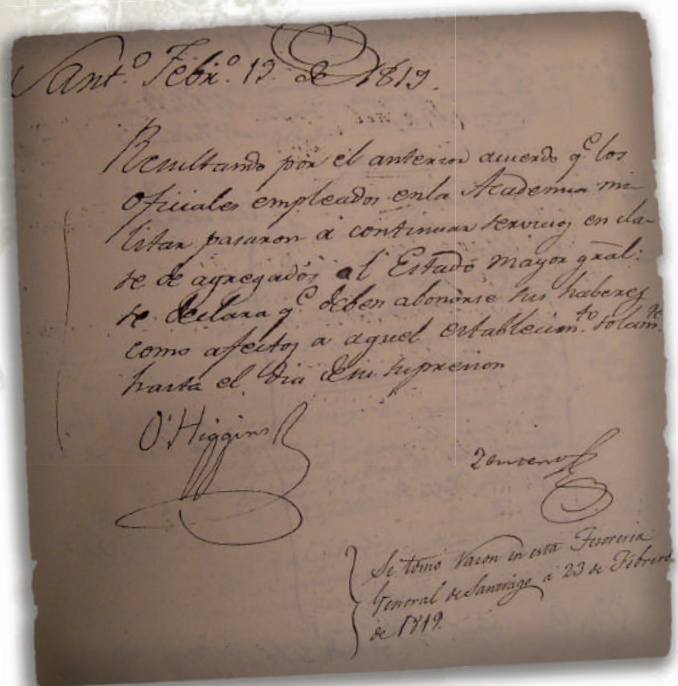 Sant.º Febr.º 19 de 1819.
Resultando por el anterior acuerdo q.e los
Oficiales empleados en la Academia mi-
litar pasaron á continuar servicios en cla-
se de agregados al Estado mayor gral:
se declara q.e deben abonarse sus haberes
como afectos a aquel establecim.to solam.te
hasta el dia de su supresion
O'Higgins
Zenteno
Se tomo razon en esta Tesoreria
General de Santiago a 23 de Febrero
de 1819.